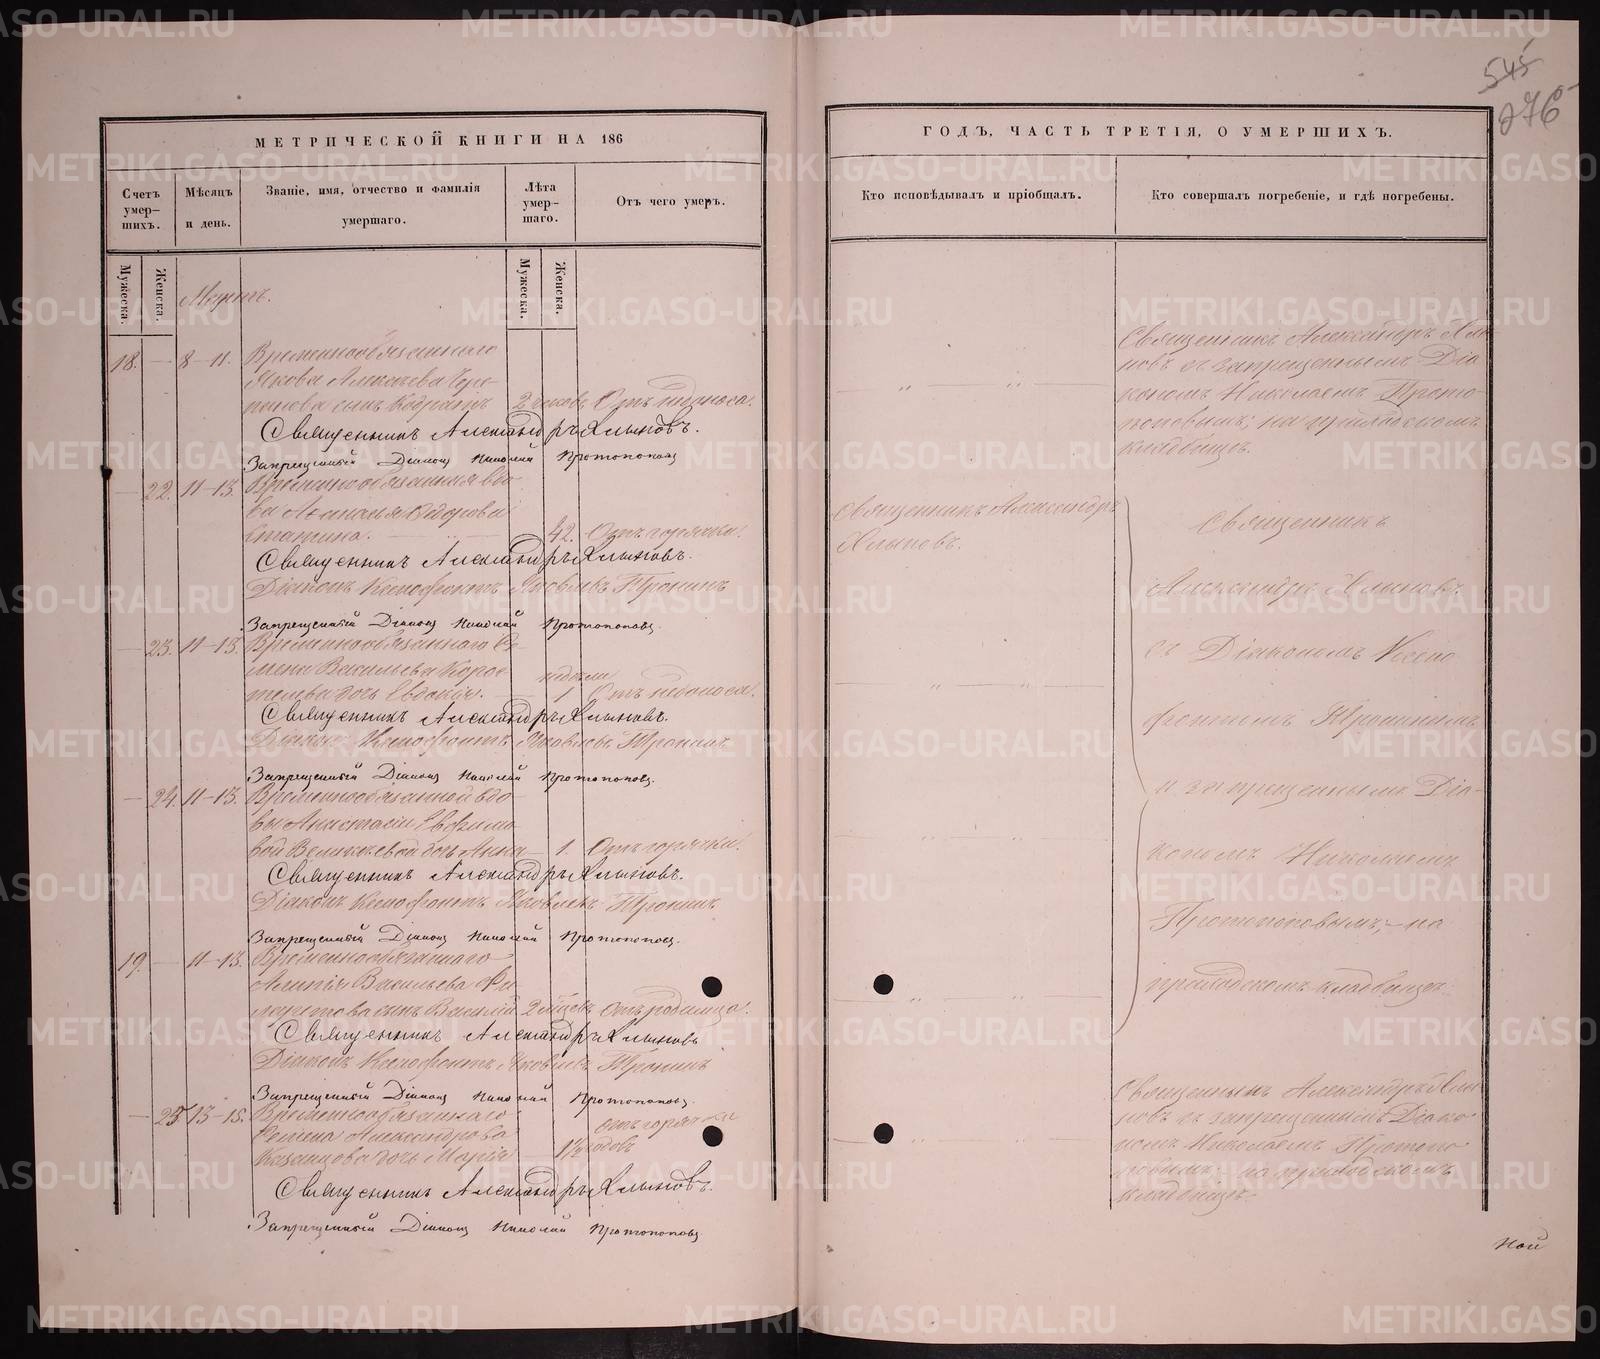 545
276
МЕТРИЧЕСКОЙ КНИГИ НА 186
Счетъ умер-шихъ.
Мѣсяцъ и день.
Званіе, имя, отчество и фамилія умершаго.
Лѣта умер-шаго.
Отъ чего умеръ.
Мужеска.
Женска.
Мужеска.
Женска.
18. — 8–11. Временнообязаннаго
Якова Алексѣева
сынъ Кодратъ 2 часовъ Отъ
Священникъ Александръ Хлыновъ.
Запрещенный Діаконъ Николай Протопоповъ
— 22. 11–13. Временнообязанная вдо-
ва Ѳедорова
42. Отъ горячки.
Священникъ Александръ Хлыновъ.
Діаконъ Ксенофонтъ Яковлевъ Тронинъ
Запрещенный Діаконъ Николай Протопоповъ.
— 23. 11–13. Временнообязаннаго Се-
мена Васильева Коров-
дочь Евдокія. недѣли 1 Отъ
Священникъ Александръ Хлыновъ.
Діаконъ Ксенофонтъ Яковлевъ Тронинъ
Запрещенный Діаконъ Николай Протопоповъ.
— 24. 11–13. Временнообязанной вдо-
вы Анастасіи Ефимо-
вой дочь Анна 1. Отъ горячки.
Священникъ Александръ Хлыновъ.
Діаконъ Ксенофонтъ Яковлевъ Тронинъ
Запрещенный Діаконъ Николай Протопоповъ.
19. — 11–13. Временнообязаннаго
Васильева
сынъ Василій 2 Отъ родимца.
Священникъ Александръ Хлыновъ
Діаконъ Ксенофонтъ Яковлевъ Тронинъ
Запрещенный Діаконъ Николай Протопоповъ.
— 25 13–15. Временнообязаннаго
Семена Александрова
Казанцова дочь Марія 1½ годовъ отъ горячки
Священникъ Александръ Хлыновъ.
Запрещенный Діаконъ Николай Протопоповъ
ГОДЪ, ЧАСТЬ ТРЕТІЯ, О УМЕРШИХЪ.
Кто исповѣдывалъ и пріобщалъ.
Кто совершалъ погребеніе, и гдѣ погребены.
Священникъ Александръ Хлы-
новъ съ запрещеннымъ Діа-
кономъ Николаемъ Прото-
поповымъ; на приходскомъ
кладбищѣ.
Священникъ Александръ
Хлыновъ.
Священникъ
Александръ Хлыновъ
съ Діакономъ Ксено
фонтомъ Тронинымъ
и запрещеннымъ Діа-
кономъ Николаемъ
Протопоповымъ;—на
приходскомъ кладбищѣ.
Священникъ Александръ Хлы-
новъ съ запрещеннымъ Діако-
номъ Николаемъ Протопо-
повымъ; на приходскомъ
кладбищѣ.
ной
METRIKI.GASO-URAL.RU